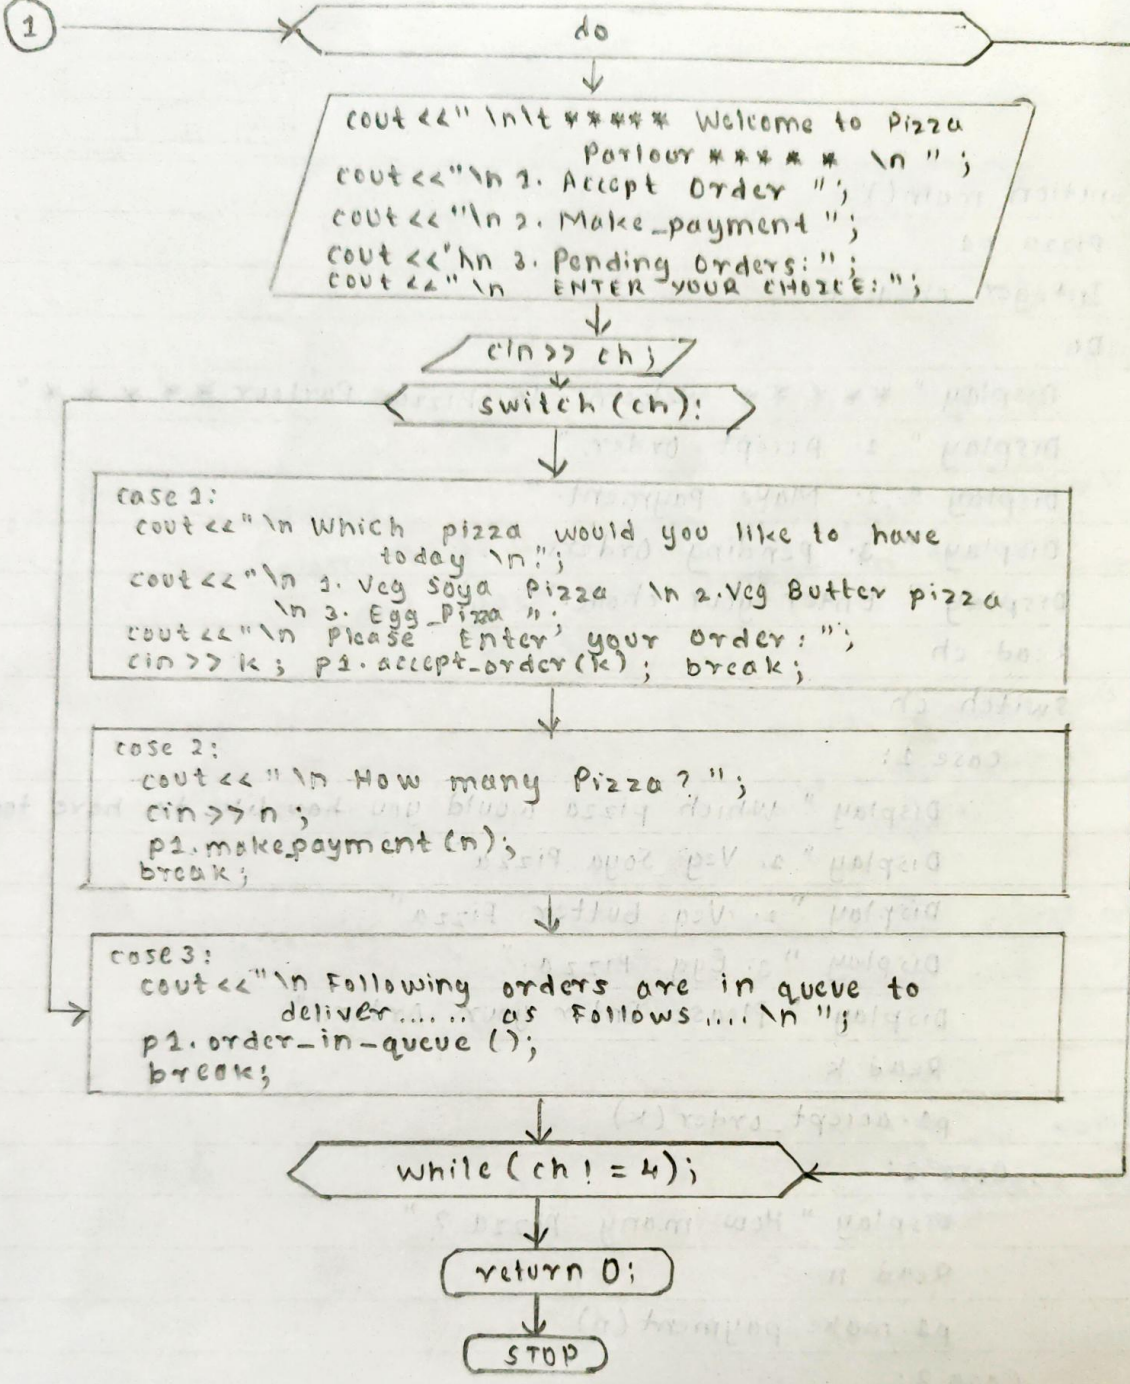 1
do
cout <<" \n\t ***** Welcome to Pizza
Parlour ***** \n " ;
cout <<"\n 1. Accept Order ";
cout <<"\n 2. Make_payment ";
cout <<"\n 3. Pending Orders:" ;
cout <<" \n ENTER YOUR CHOICE:";
cin >> ch ;
switch (ch):
case 1:
cout <<" \n Which pizza would you like to have
today \n";
cout <<"\n 1. Veg Soya Pizza \n 2. Veg Butter pizza
\n 3. Egg_Pizza ";
cout <<"\n Please Enter your order: ";
cin >> k ; p1.accept_order(k) ; break;
case 2:
cout << "\n How many Pizza? ";
cin >> n ;
p1.make_payment (n);
break;
case 3:
cout <<"\n Following orders are in queue to
deliver...... as Follows.... \n ";
p1.order_in_queue ();
break;
while (ch ! = 4);
return 0;
STOP